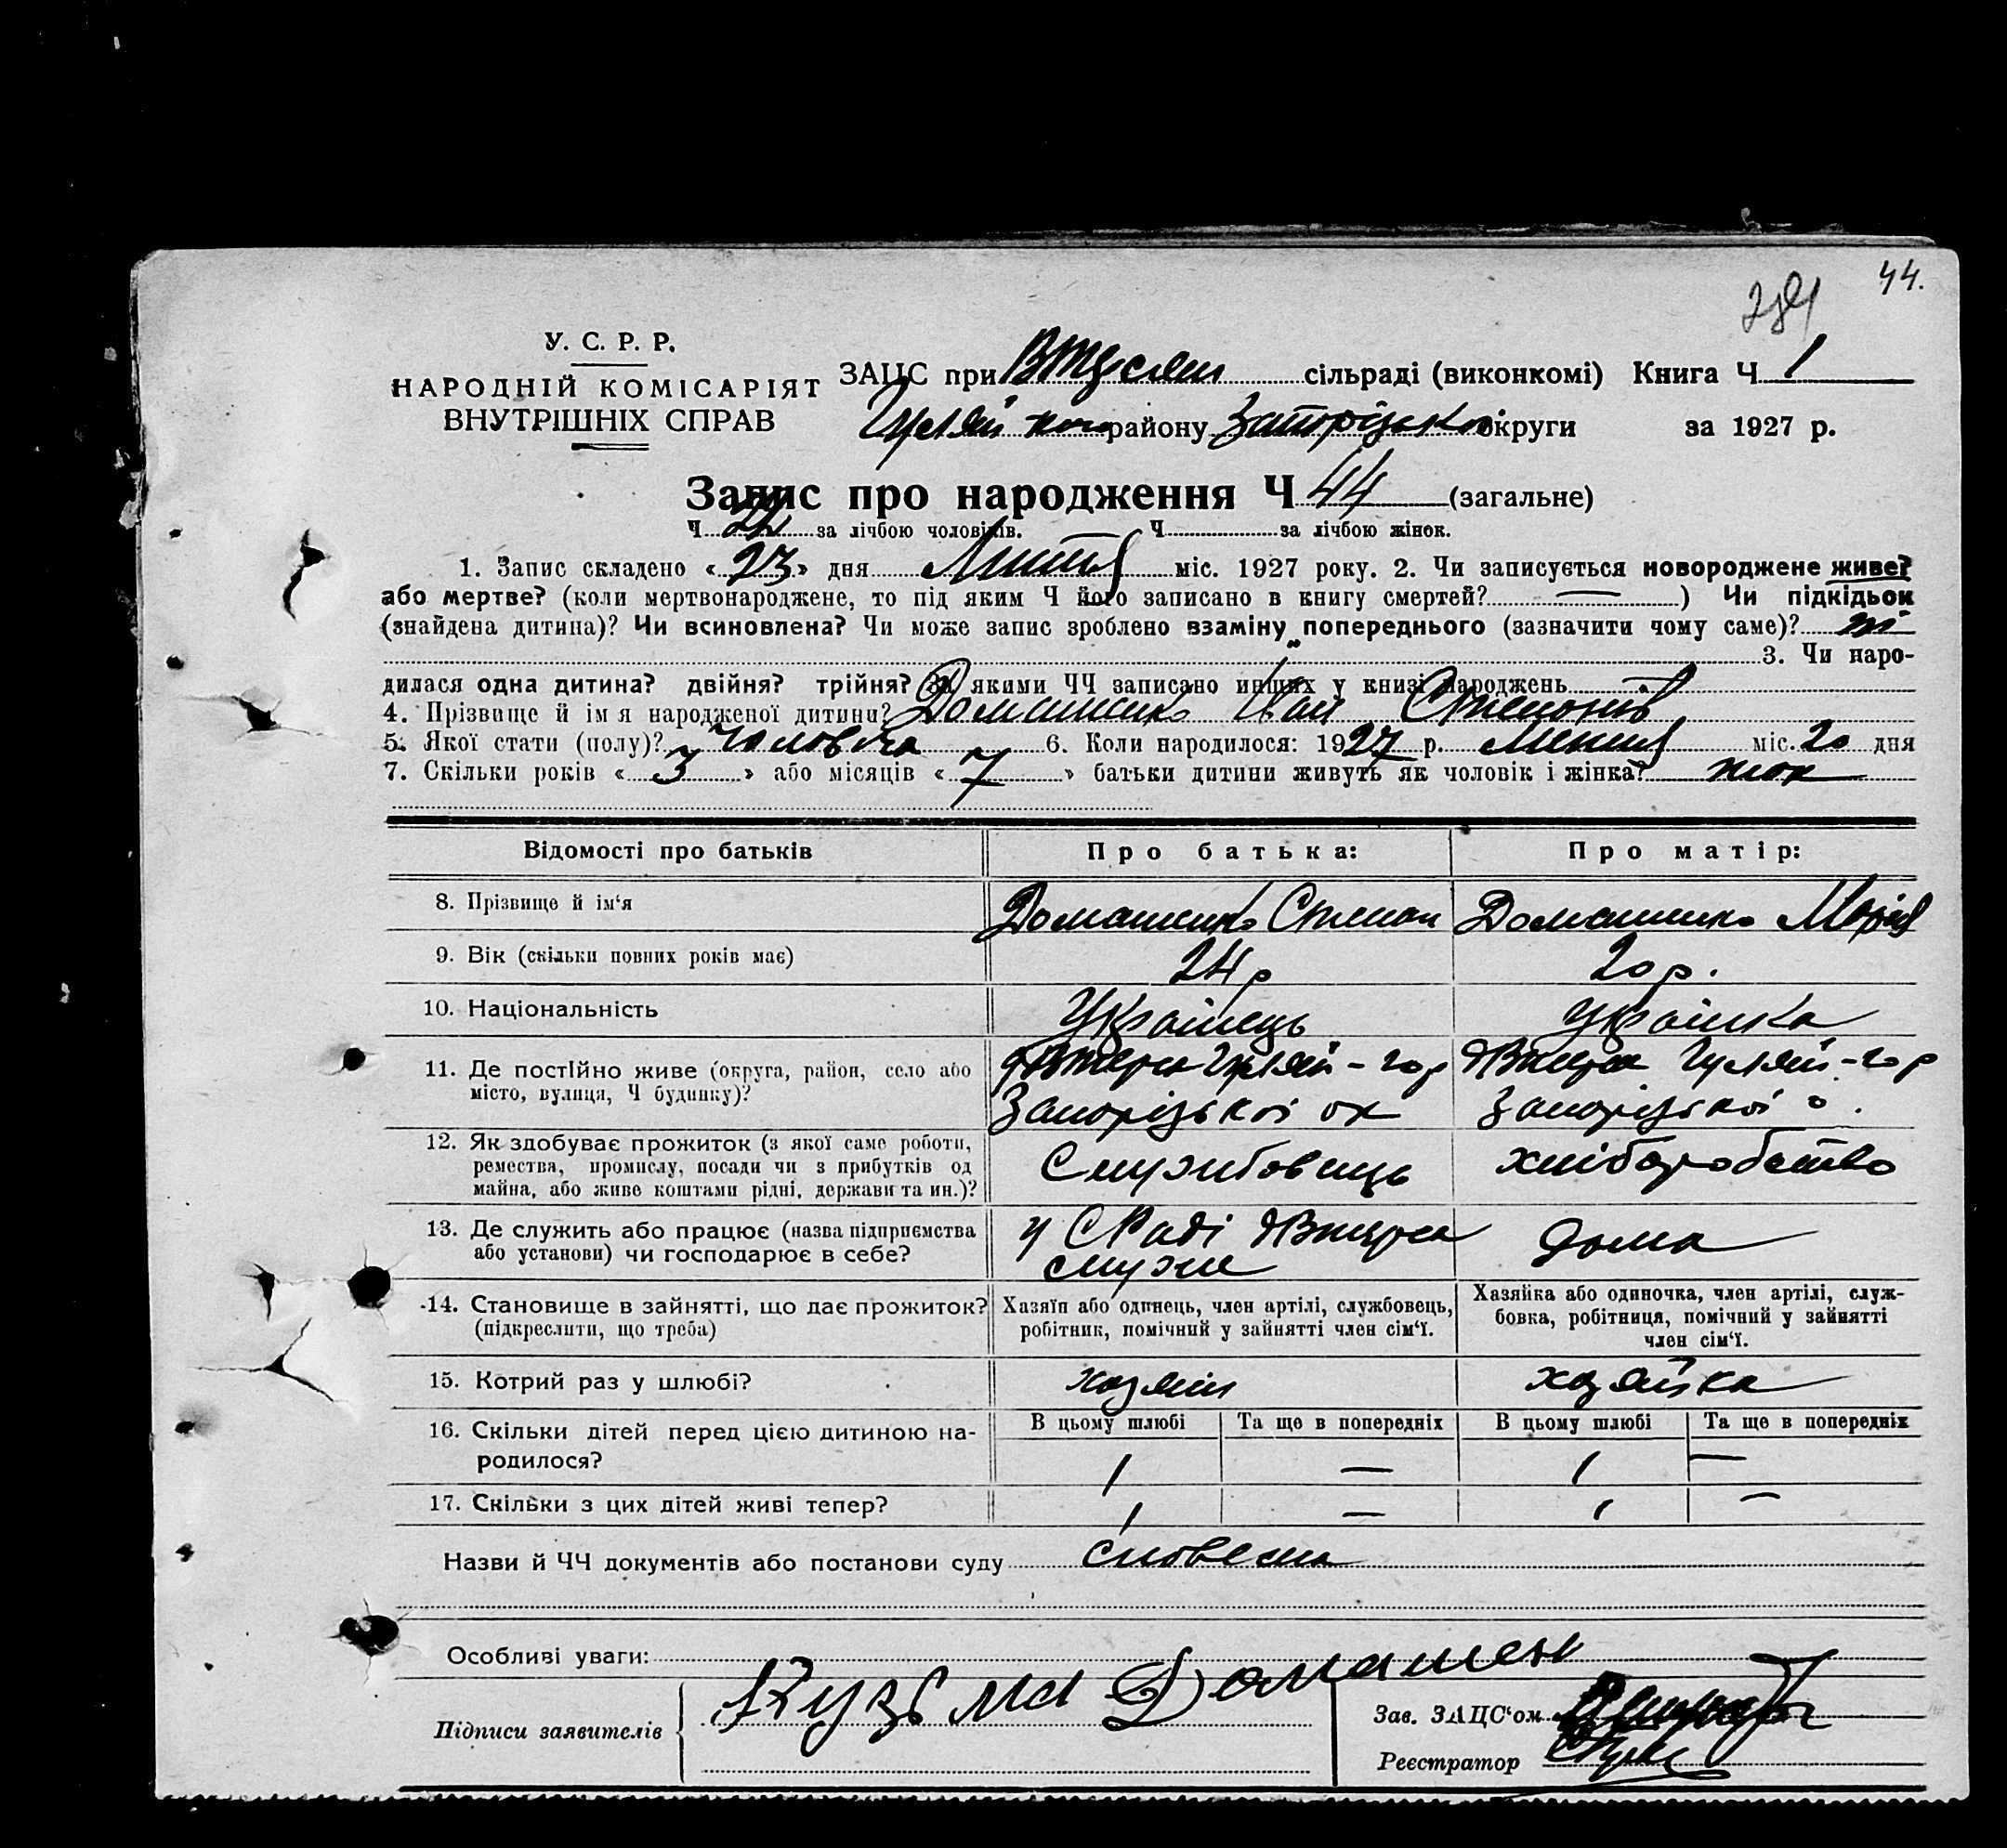 44.
У. С. Р. Р.
НАРОДНІЙ КОМІСАРІЯТ
ВНУТРІШНІХ СПРАВ
ЗАЦС при сільраді (виконкомі) Книга Ч 1
Гуляй району Запорізької округи за 1927 р.
Запис про народження Ч 44 (загальне)
Ч 22 за лічбою чоловіків. Ч за лічбою жінок.
1. Запис складено « 23 » дня Лютня міс. 1927 року. 2. Чи записується новороджене живе?
або мертве? (коли мертвонароджене, то під яким Ч його записано в книгу смертей? — ) Чи підкідьок
(знайдена дитина)? Чи всиновлена? Чи може запис зроблено взаміну попереднього (зазначити чому саме)? ні
3. Чи наро-
дилася одна дитина? двійня? трійня? За якими ЧЧ записано инших у книзі народжень
4. Прізвище й імя народженої дитини? Домашенко Іван Степанів
5. Якої стати (полу)? Чоловіча 6. Коли народилося: 1927 р. Лютня міс. 20 дня
7. Скільки років « 3 » або місяців « 7 » батьки дитини живуть як чоловік і жінка?
Відомості про батьків Про батька: Про матір:
8. Прізвище й ім'я Домашенко Степан Домашенко Марія
9. Вік (скільки повних років має) 24 р 20 р.
10. Національність Українець Українка
11. Де постійно живе (округа, район, село або
місто, вулиця, Ч будинку)?
Гуляй-пор Гуляй-пор
Запорізької ок Запорізької о.
12. Як здобуває прожиток (з якої саме роботи,
ремества, промислу, посади чи з прибутків од
майна, або живе коштами рідні, держави та ин.)?
Службовець хліборобство
13. Де служить або працює (назва підприємства
або установи) чи господарює в себе?
у СРаді дома
служе
14. Становище в зайнятті, що дає прожиток?
(підкреслити, що треба)
Хазяїн або одинець, член артілі, службовець,
робітник, помічний у зайнятті член сім'ї.
Хазяйка або одиночка, член артілі, служ-
бовка, робітниця, помічний у зайнятті
член сім'ї.
15. Котрий раз у шлюбі? хазяїн хазяйка
16. Скільки дітей перед цією дитиною на-
родилося?
В цьому шлюбі Та ще в попередніх В цьому шлюбі Та ще в попередніх
1 — 1 —
17. Скільки з цих дітей живі тепер? 1 — 1 —
Назви й ЧЧ документів або постанови суду словесна
Особливі уваги:
Підписи заявителів Кузьма Домашен
Зав. ЗАЦС'ом
Реєстратор